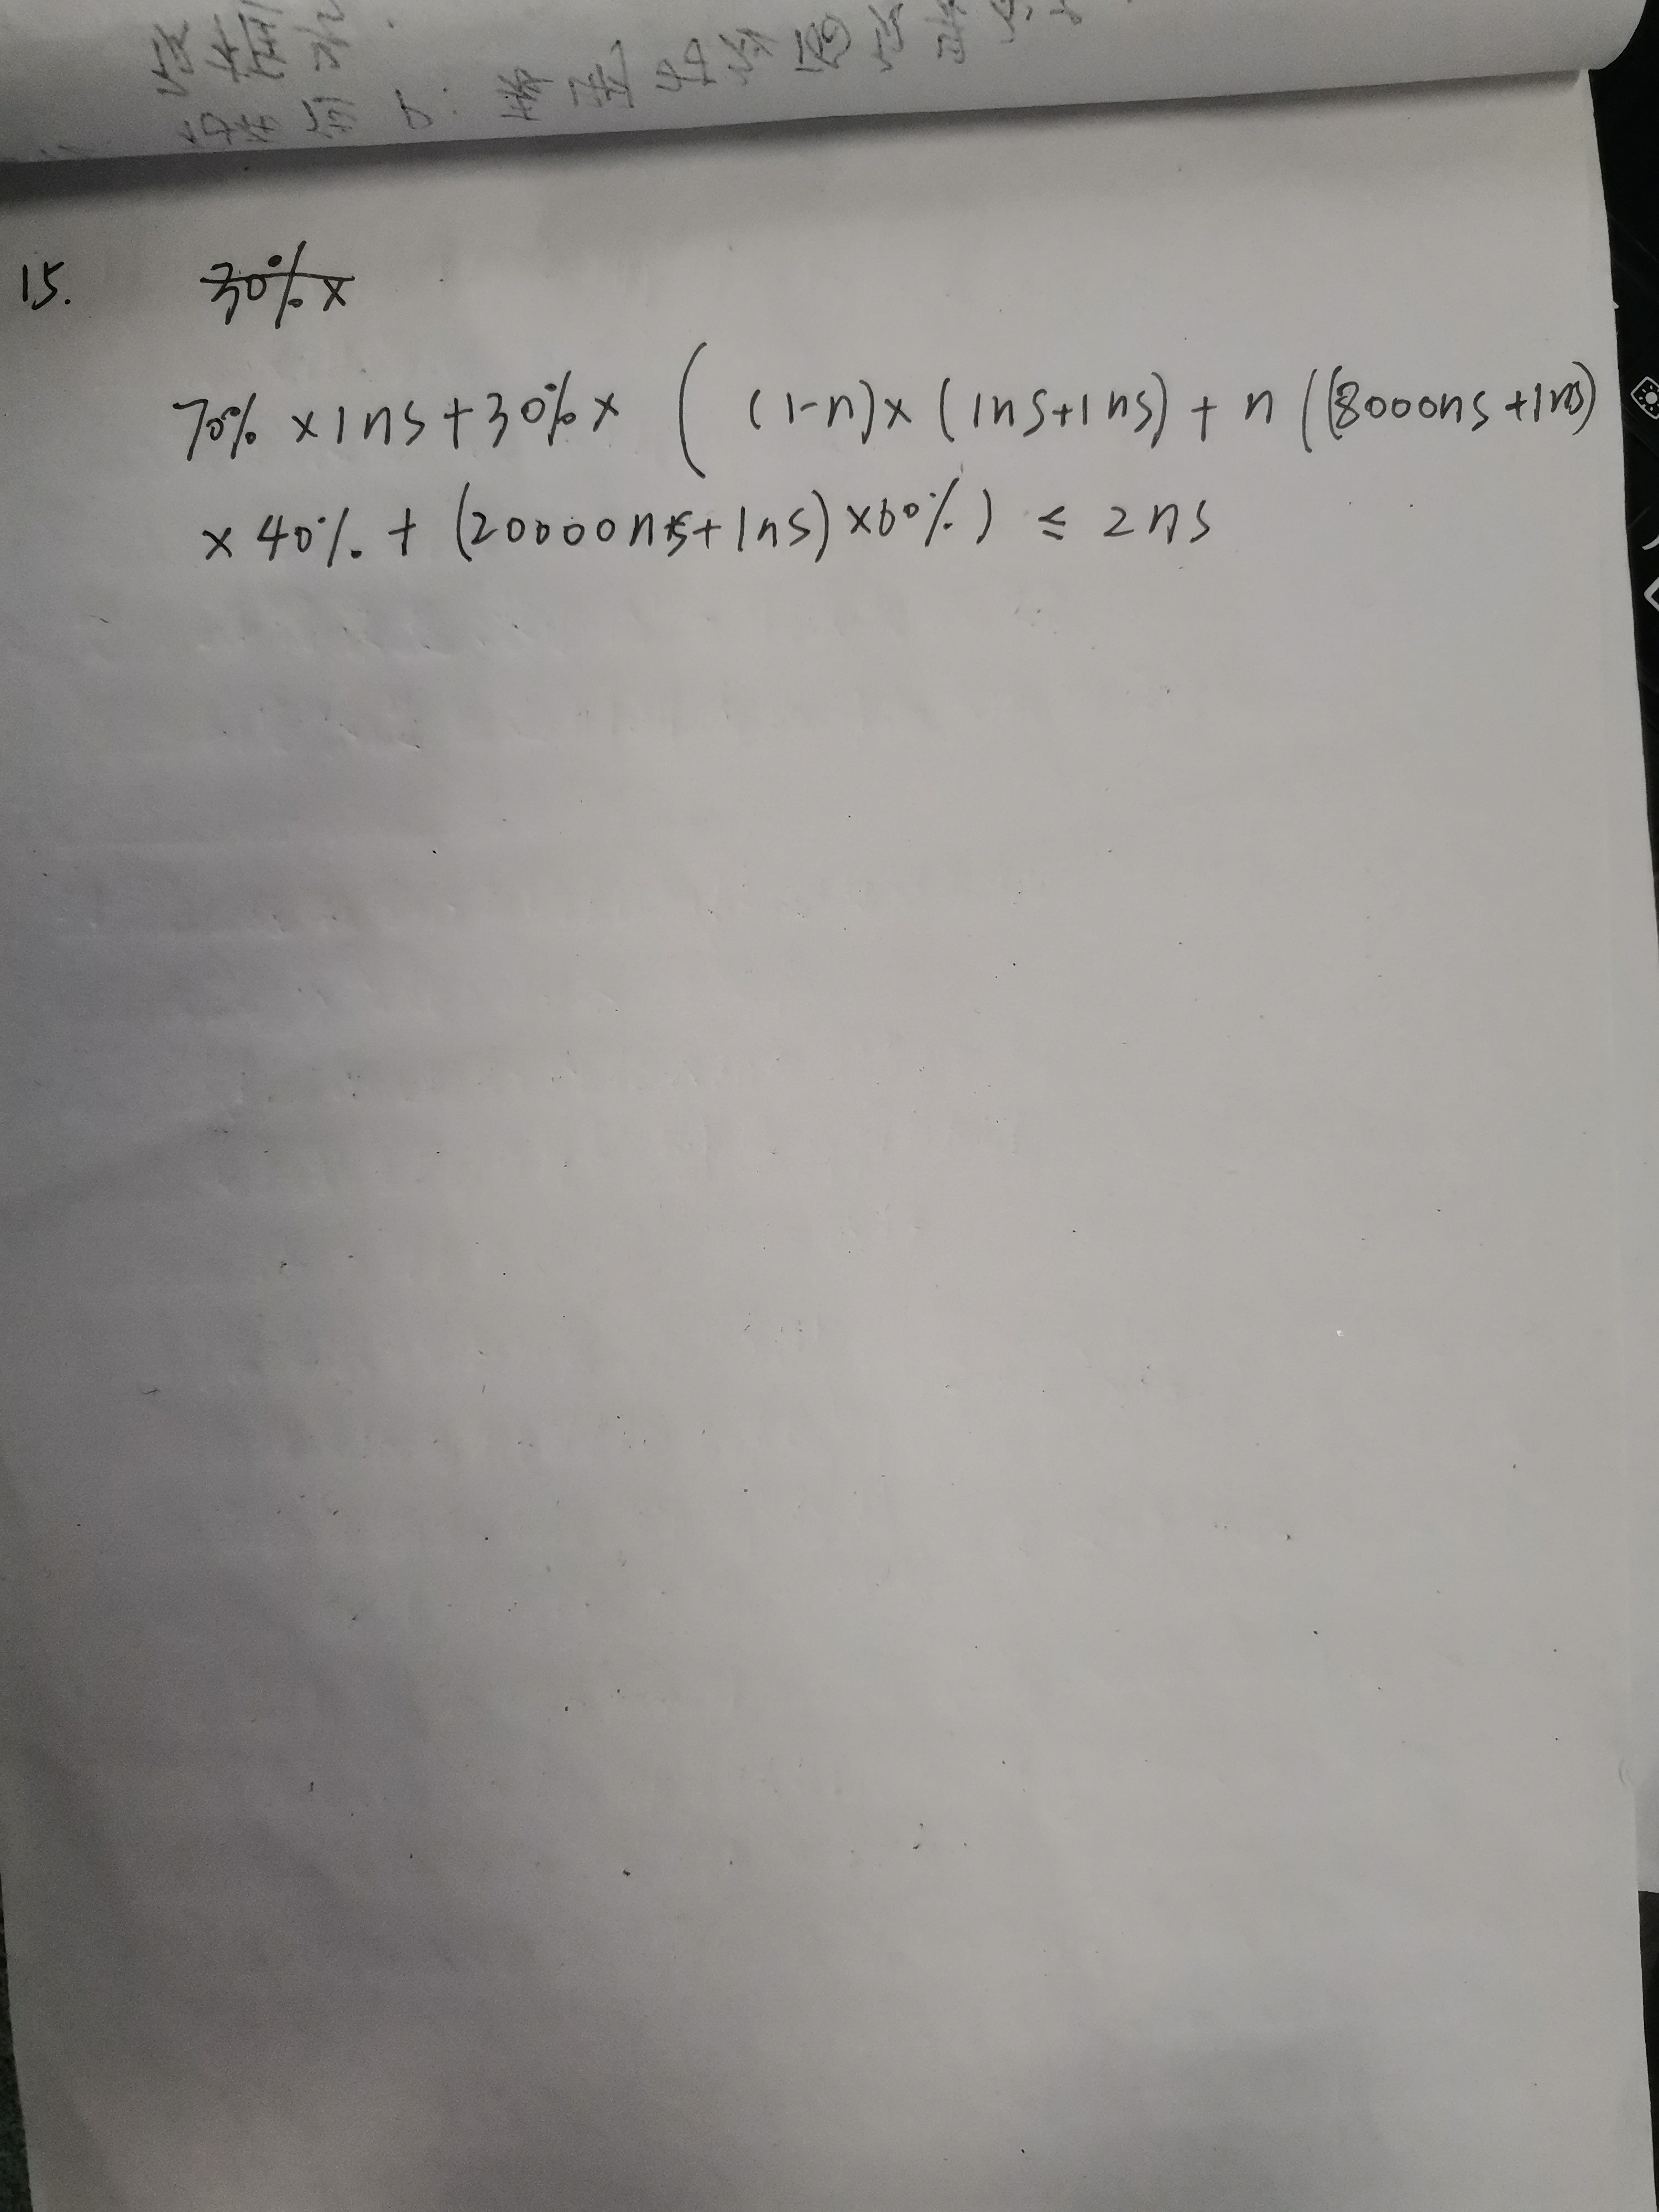 15. 30%×
70% × 1ns + 30% × ( (1-n)× (1ns+1ns) + n ((8000ns +1ns)
× 40% + (20000ns+1ns) ×60%) ≤ 2ns